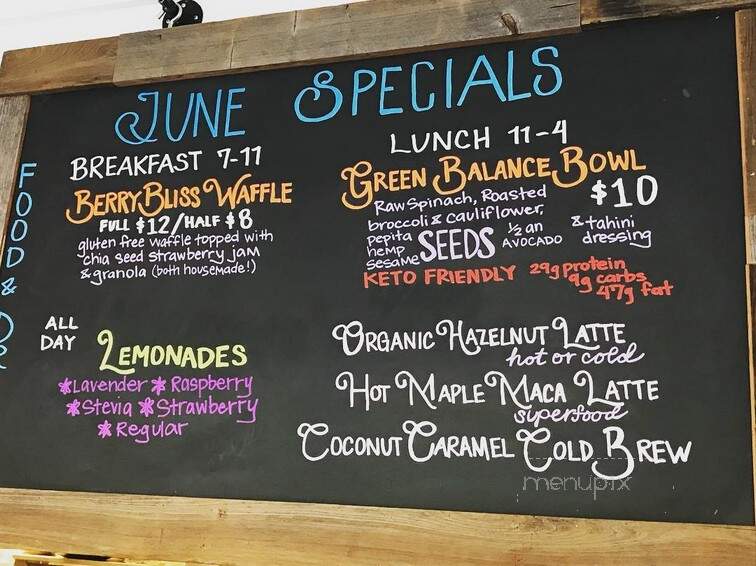 JUNE SPECIALS
FOOD &
BREAKFAST 7-11
BERRY BLISS WAFFLE
FULL $12/HALF $8
gluten free waffle topped with
chia seed strawberry jam
& granola (both housemade!)
ALL
DAY
LEMONADES
*Lavender *Raspberry
*Stevia *Strawberry
*Regular
LUNCH 11-4
GREEN BALANCE BOWL
$10
Raw Spinach, Roasted
broccoli & cauliflower,
pepita
hemp
sesame
SEEDS
½ an
AVOCADO
& tahini
dressing
KETO FRIENDLY
29g protein
9g carbs
47g fat
ORGANIC HAZELNUT LATTE
hot or cold
HOT MAPLE MACA LATTE
superfood
COCONUT CARAMEL COLD BREW
menupix